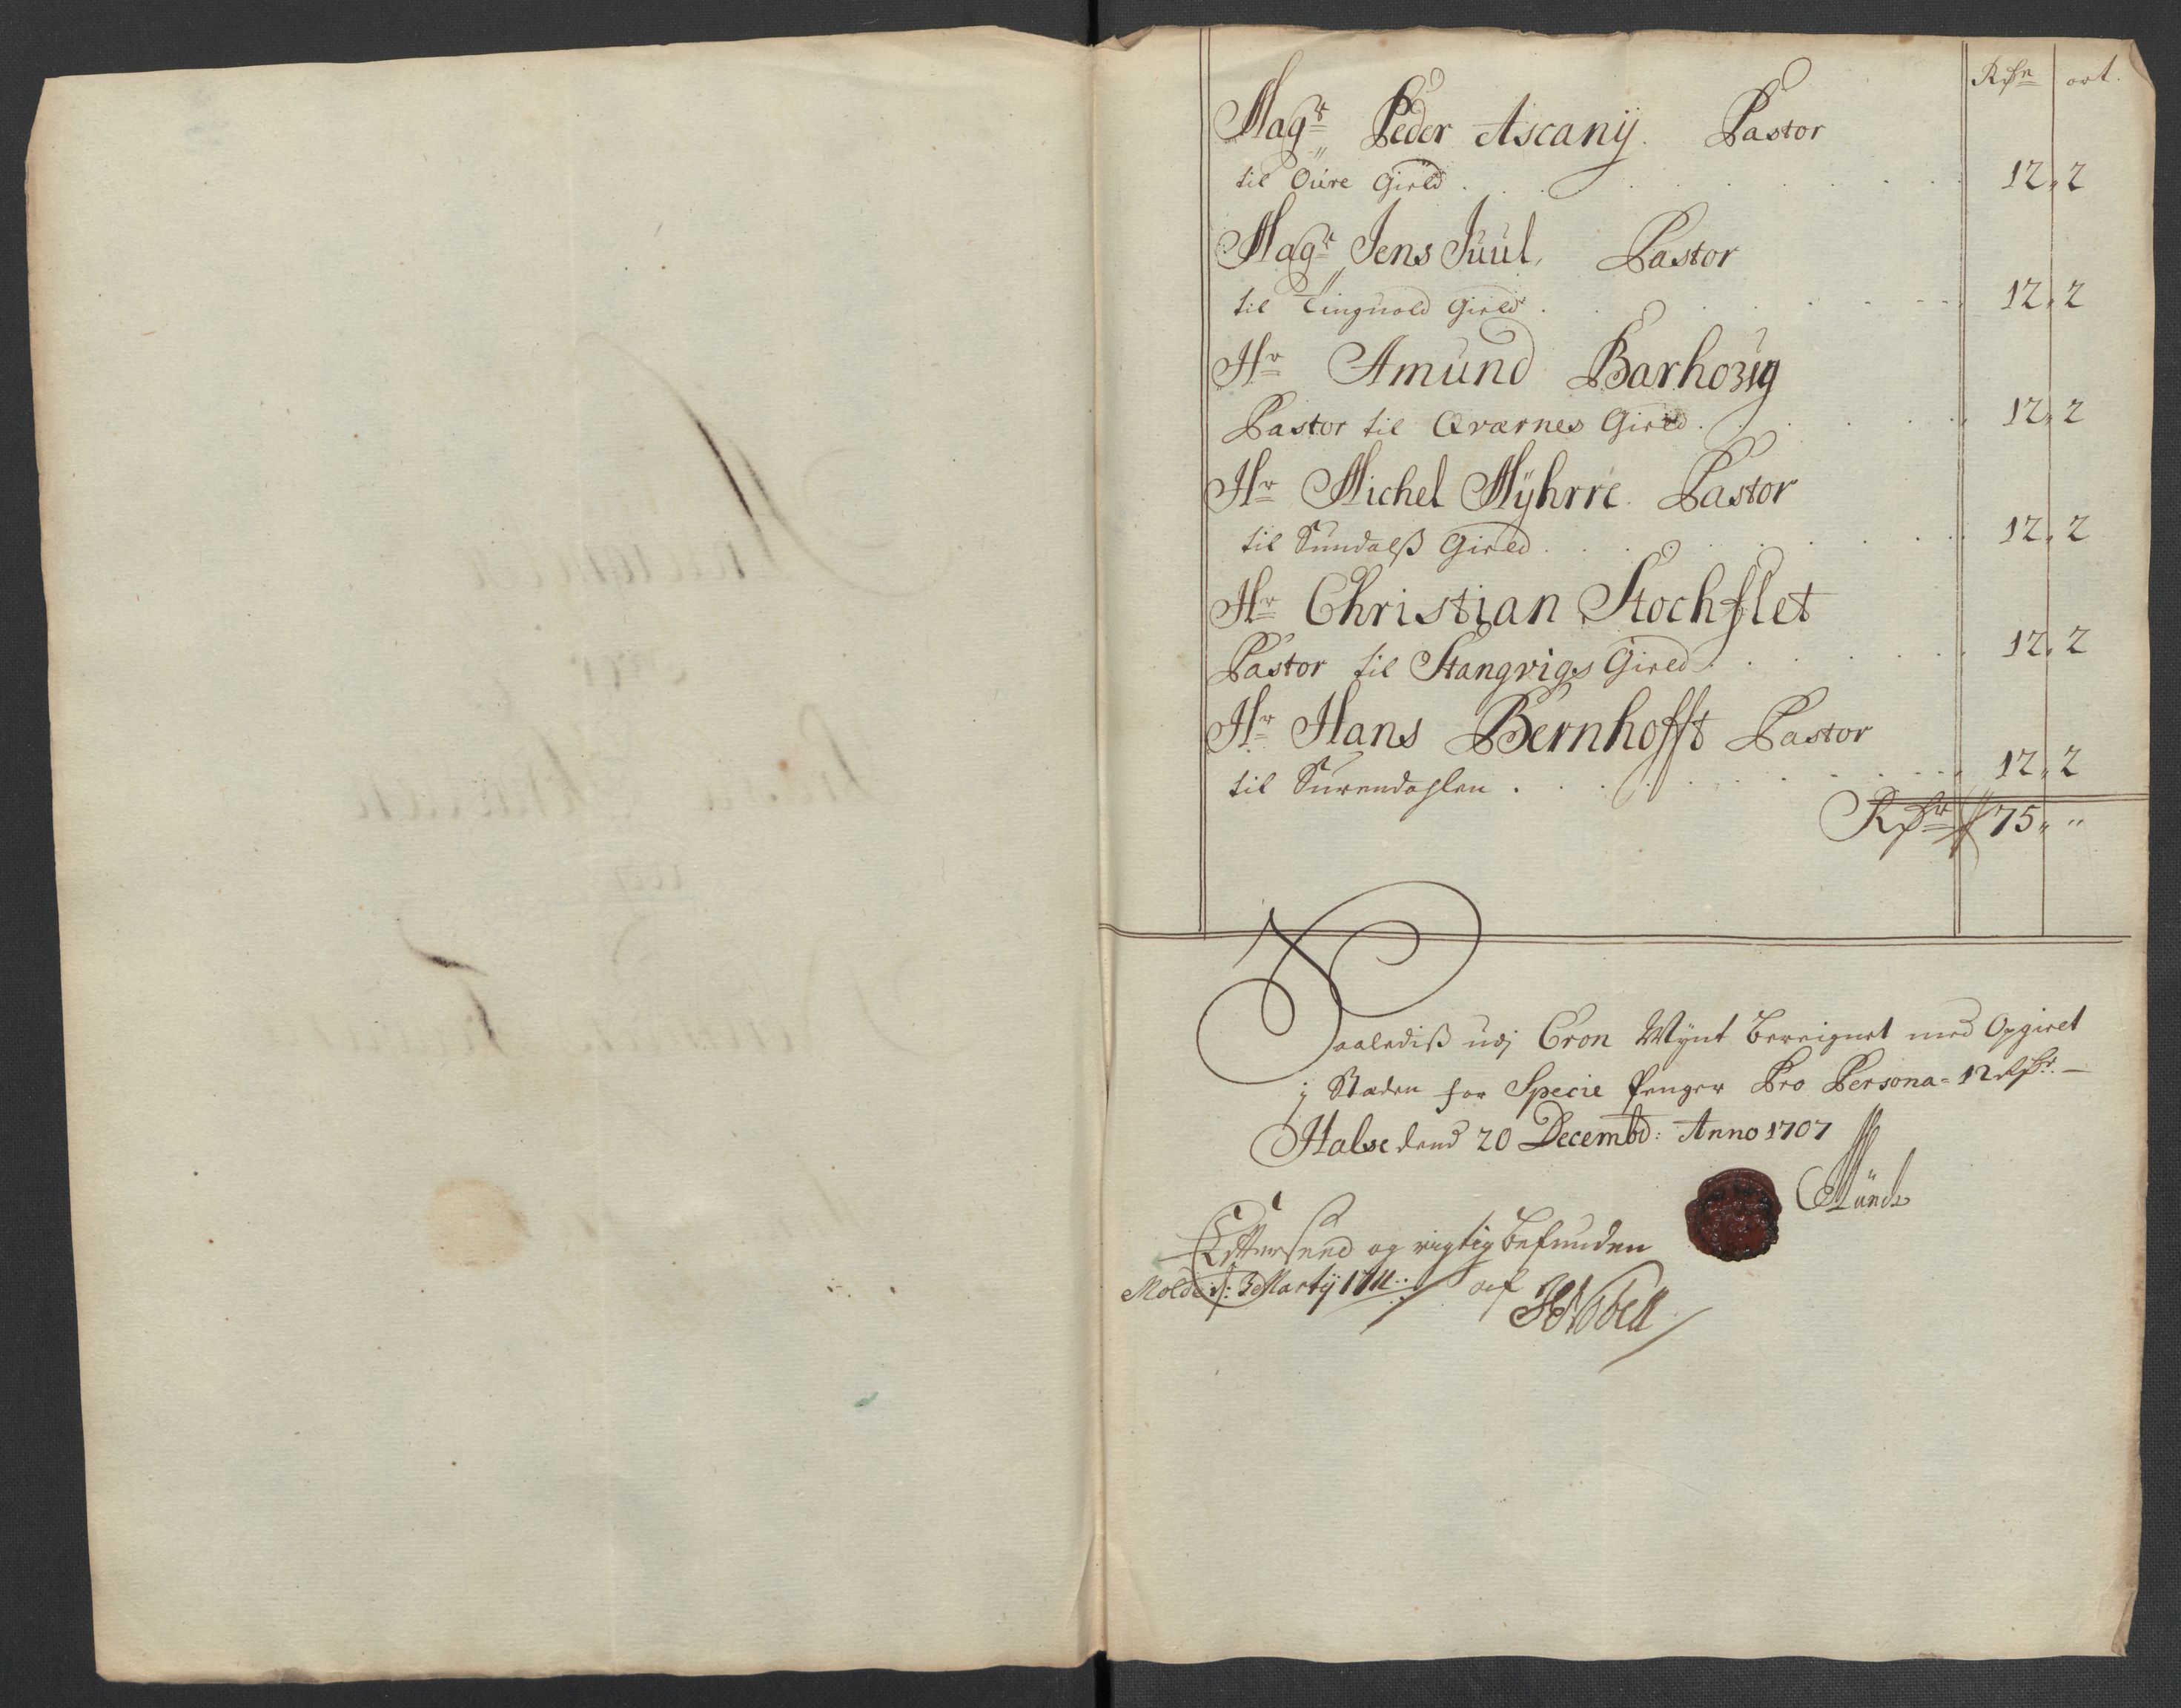 Rdr ort.
Magr Peder Ascanij. Pastor
til Öure Gield . . . 12 " 2
Magr Jens Juul, Pastor
til Tinguold Gield . . . 12 " 2
Hr Amund Barhoug
Pastor til Qvarnes Gield . . . 12 " 2
Hr Michel Myhrre Pastor
til Sundalß Gield . . . 12 " 2
Hr Christian Stochflet
Pastor til Stangvigs Gield . . . 12 " 2
Hr Hans Bernhofft Pastor
til Surendahlen . . . 12 " 2
Rdr 75 " "
Saalediß udj Cron Mynt bereignet med Opgiret
j Staden for Specie Penger Pro Persona = 12 Rdr. —
Halse dend 20 Decembd: Anno 1707
Münch
Eftterseed og rigtig befunden
Molde d: 3 Martij 1711 af